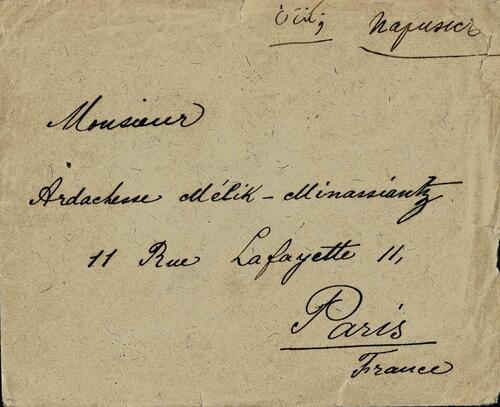 Парижъ
Monsieur
Ardachesse Mélik-Minassiantz
11 Rue Lafayette 11,
Paris
France